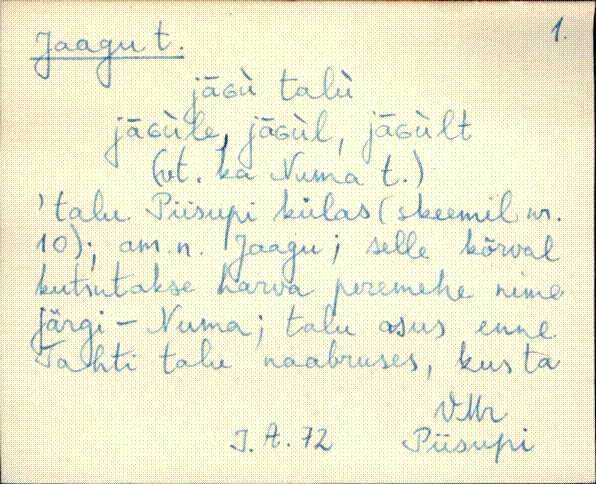 1.
Jaagu t.
jāɢù talù
jāɢùle, jāɢùl, jāɢùlt
(vt. ka Numa t.)
'talu Piisupi külas (skeemil nr.
10); am. n. Jaagu; selle kõrval
kutsutakse harva peremehe nime
järgi - Numa; talu asus enne
Tahti talu naabruses, kus ta
VMr
J. A. 72 Piisupi